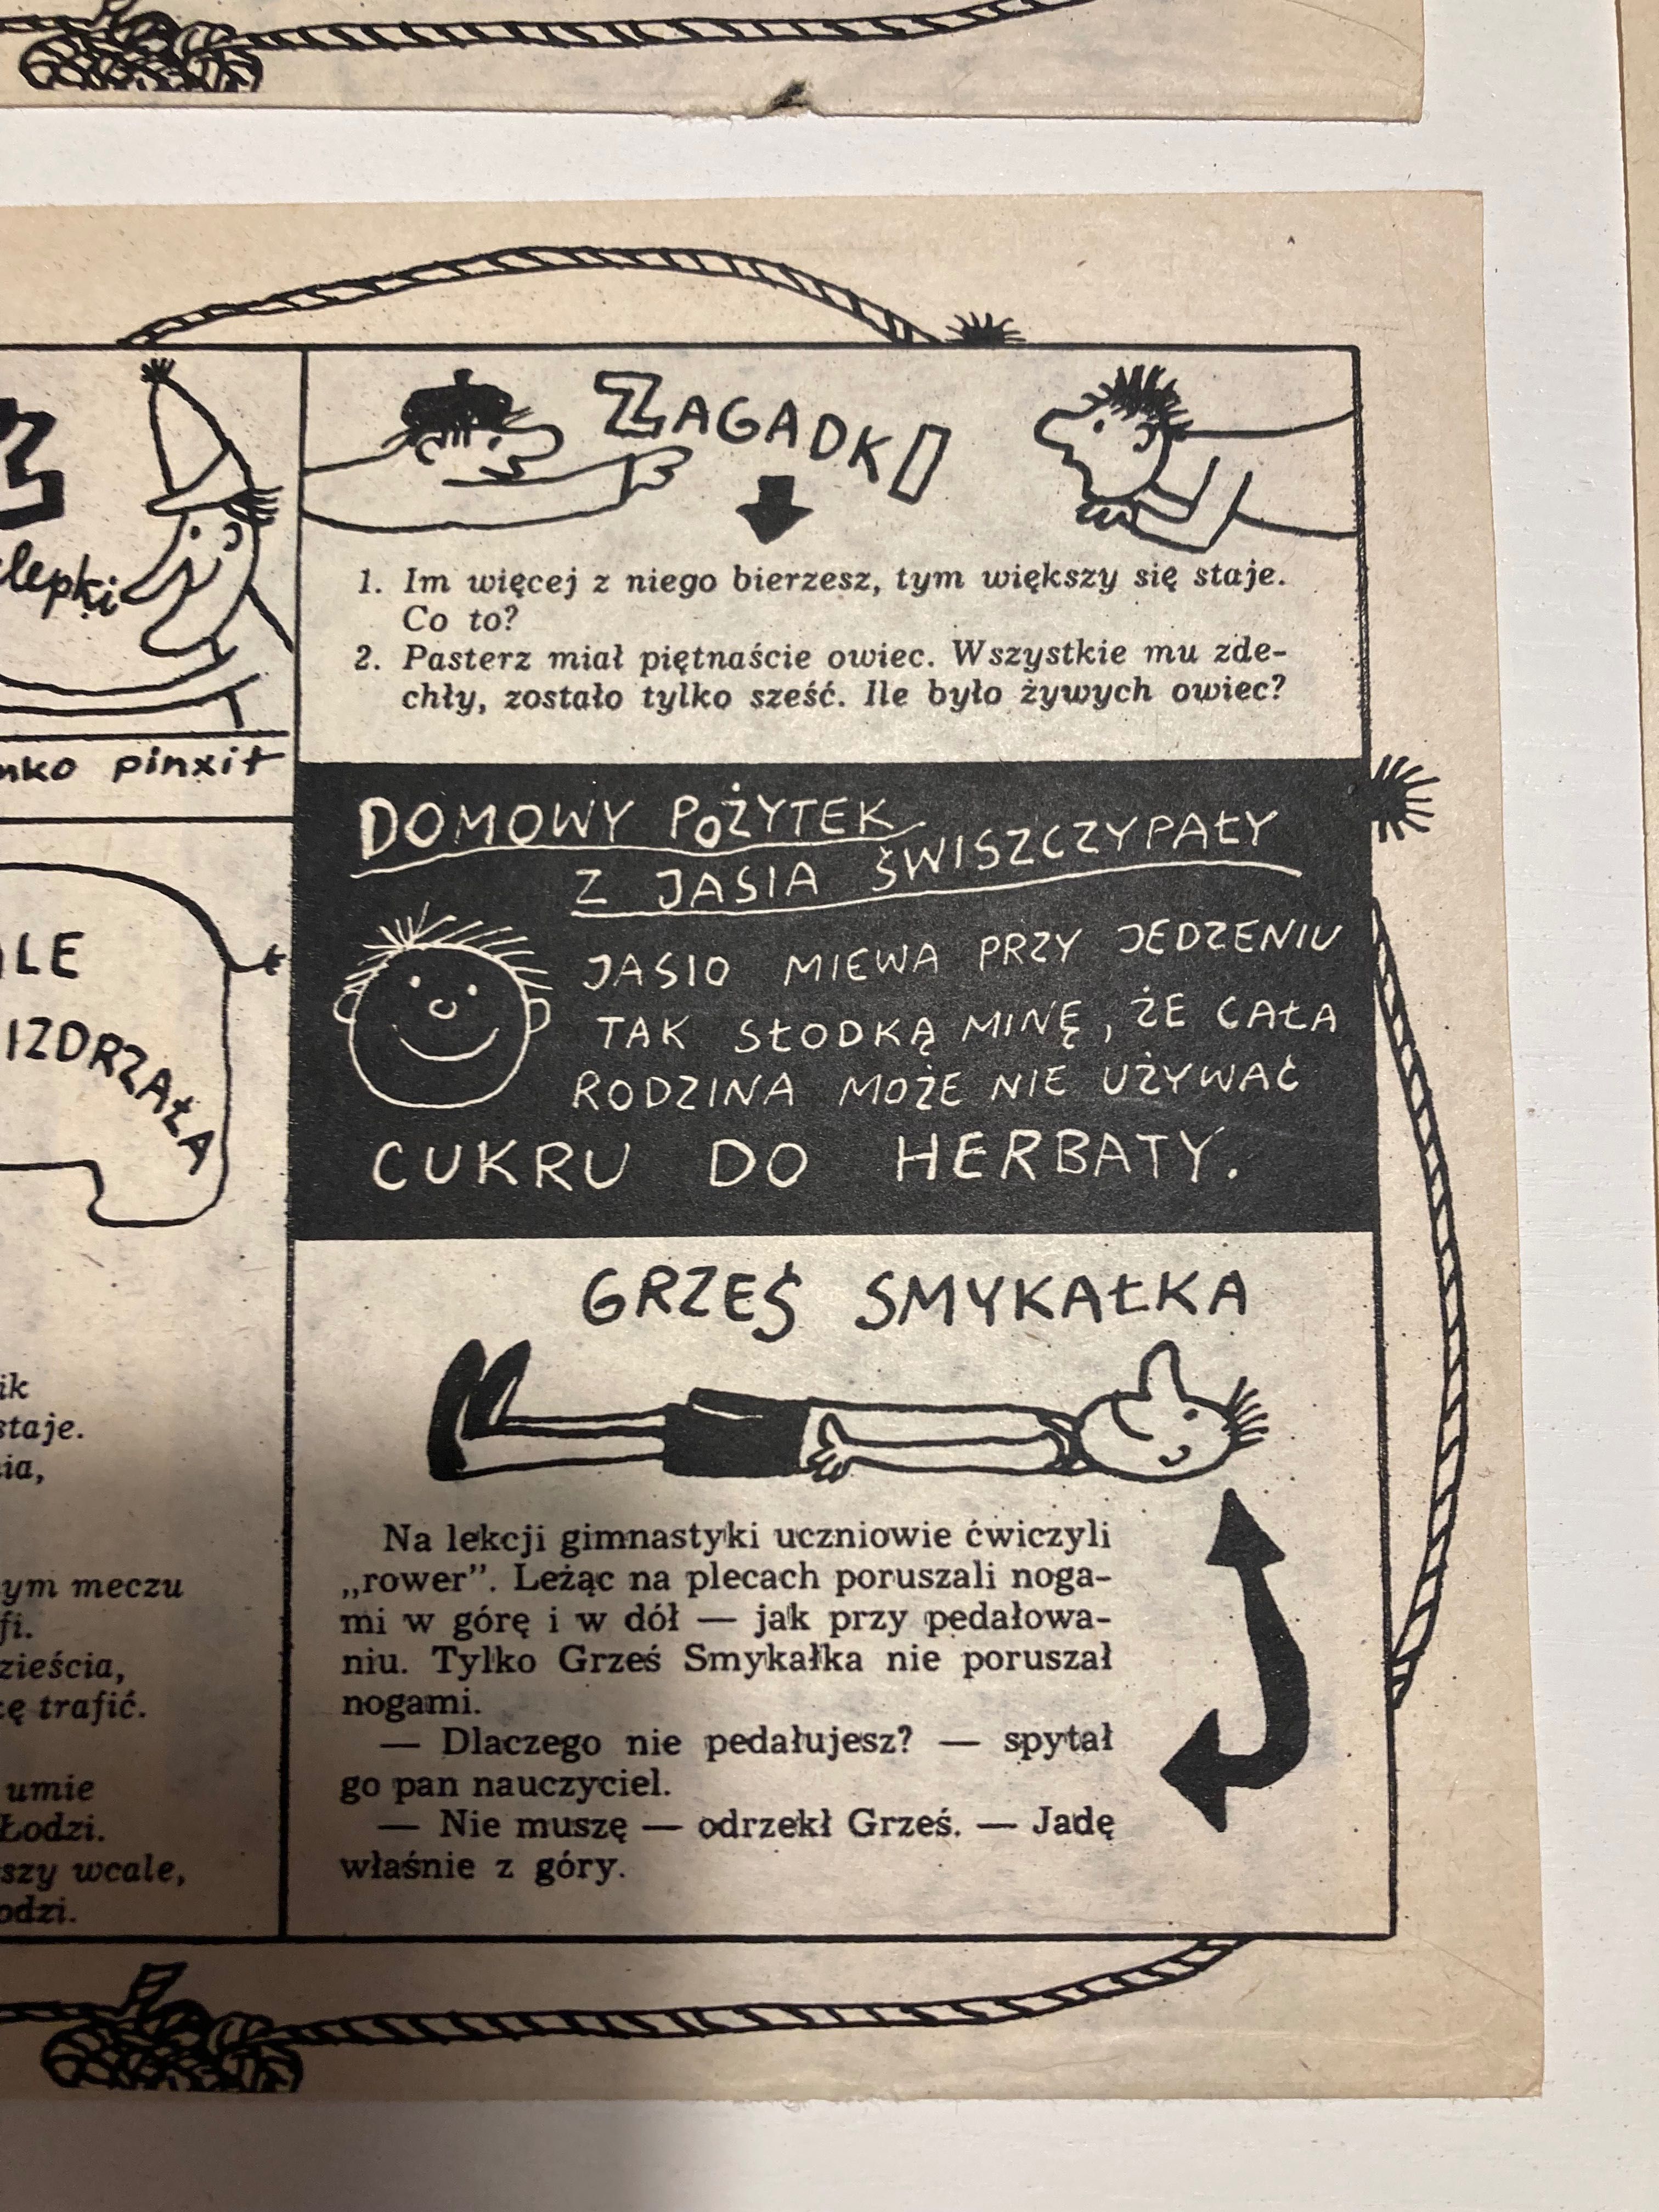 lepki
nko pinxit
LE
IZDRZAŁA
ik
staje.
ia,
ym meczu
fi.
zieścia,
ę trafić.
umie
Łodzi.
szy wcale,
odzi.
ZAGADKI
1. Im więcej z niego bierzesz, tym większy się staje.
Co to?
2. Pasterz miał piętnaście owiec. Wszystkie mu zde-
chły, zostało tylko sześć. Ile było żywych owiec?
DOMOWY POŻYTEK
Z JASIA ŚWISZCZYPAŁY
JASIO MIEWA PRZY JEDZENIU
TAK SŁODKĄ MINĘ, ŻE CAŁA
RODZINA MOŻE NIE UŻYWAĆ
CUKRU DO HERBATY.
GRZEŚ SMYKAŁKA
Na lekcji gimnastyki uczniowie ćwiczyli
„rower”. Leżąc na plecach poruszali noga-
mi w górę i w dół — jak przy pedałowa-
niu. Tylko Grześ Smykałka nie poruszał
nogami.
— Dlaczego nie pedałujesz? — spytał
go pan nauczyciel.
— Nie muszę — odrzekł Grześ. — Jadę
właśnie z góry.